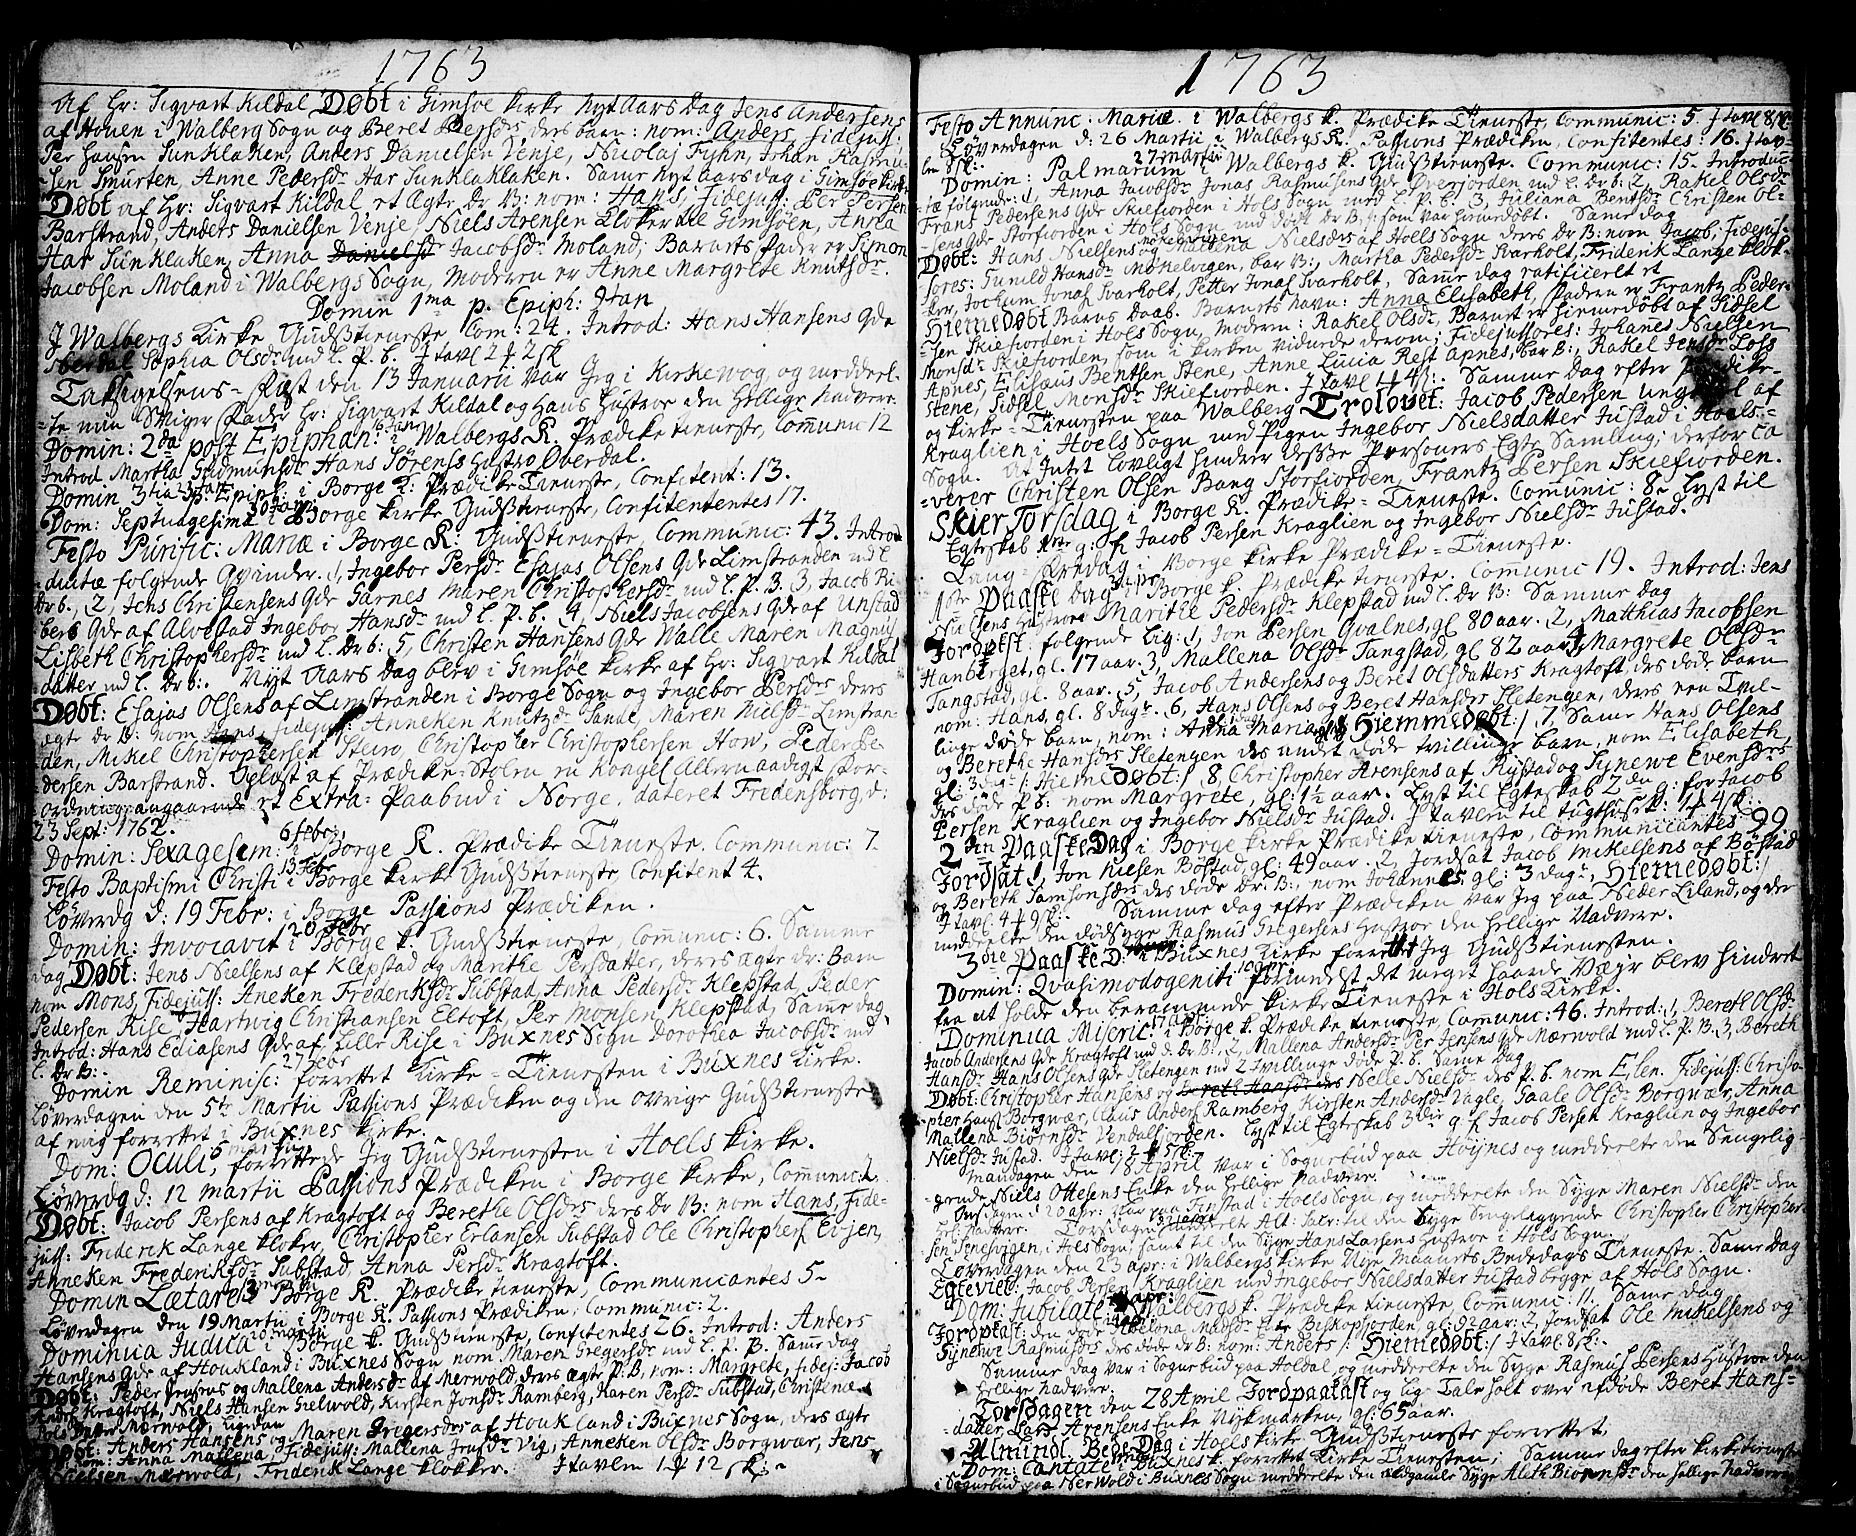 1763
Af Hr: Sigvart Kildal Døbt i Gimsøe Kirke Nyt Aars Dag Jens Andersens
af Hoven i Walberg Sogn og Beret Persdr ders barn: nom: Anders, fidejuss:
Per Hansen Sunklaken, Anders Danielsen Venje, Nicolaj Fyhn, Johan Rasmu-
-sen Smurten, Anne Pedersdr Har Sunklaklaken. Samme Nyt Aars dag i Gimsøe Kirke
Døbt af Hr: Sigvart Kildal et Ægte Dr B: nom: Hans, fidejuss: Per Persen
Barstrand, Anders Danielsen Venje, Niels Arensen Kloker til Gimsøen, Anna
Har Sunklaken, Anna Danielsd Jacobsdr Moland; Barnets Fader er Simon
Jacobsen Moland i Walbergs Sogn, Moderen er Anne Margrete Knutsdr.
Domin 1ma p. Epiph: Han
J Walbergs Kirke Gudstieneste Com: 24. Introd: Hans Hansens Qde
Sophia Olsdr md l. P. b. J tavl 2 # 2 sk
Taksigelsens-Fæst den 13 Januarii var Jeg i Kirkewog og meddeel-
-te min Svoger Fader Hr: Sigvart Kildal og Hans Hustroe den Hellige Nadvere
Domin: 2da post Epiphan: 16 Jan i Walbergs K. Prædike tieneste, Communic 12
Introd Martha Gudmunsdr Hans Sørens Hustro Overdal.
Domin 3tia p. Epiph: i Borge K: Prædike Tieneste, Confitent: 13.
Dom: Septuagesima 30 Jan i Borge Kirke Gudstieneste, Confitentes 17.
Festo Purific: Mariæ i Borge K: Gudstieneste, Communic: 43. Introd
-ductæ følgende Qvinder. 1, Ingebor Persdr Esajas Olsens Qde Limstranden md l
Dr b., 2, Jens Christensens Qde Garnes Maren Christophersdr md l. P. B. 3, Jacob Ri-
bers Qde af Alvestad Ingebor Hansdr md l. P. b. 4, Niels Jacobsens Qde af Unstad
Lisbeth Christophersdr md l. Dr b: 5, Christen Hansens Qde Walle Maren Magnus
datter md l. Dr b:. Nyt Aars Dag blev i Gimsøe Kirke af Hr: Sigvart Kildal
Døbt: Esajas Olsens af Limstranden i Borge Sogn og Ingebor Persdrs ders
ægte Dr B: nom Hans, fidejuss: Anneken Knutzdr Sande, Maren Nielsdr Limstran-
den, Mikel Christophersen Steiro, Christopher Christophersen How, Peder Pe-
dersen Barstrand. Oplæst af Prædike-Stolen en Kongel Allernaadigst For-
ordning angaaende et Extra-Paabud i Norge, dateret Fredensborg d:
23 Sept: 1762.
Domin: Sexagesim: 6 febr: i Borge K. Prædike Tieneste. Communic: 7.
Festo Baptismi Christi 13 Feb i Borge Kirke Gudstieneste, Confitent 4.
Løverdg d: 19 Febr: i Borge Passions Prædiken.
Domin: Invocavit 20 Febr i Borge K. Gudstieneste, Communic: 6. Samme
dag Døbt: Jens Nielsens af Klepstad og Marithe Persdatter, ders ægte Dr: Barn
nom Mons, Fidejuss: Aneken Frederiksdr Substad, Anna Pedersdr Klepstad, Peder
Pedersen Rise, Hartwig Christiansen Eltoft, Per Monsen Klepstad, Samme dag
Introd: Hans Ediasens Qde af Lille Rise i Buxnes Sogn Dorothea Jacobsdr md
l. Dr B:.
Domin Reminisc: 27 febr forrettet Kirke-Tienesten i Buxnes Kirke.
Løverdagen den 5te Martii Passions Prædiken og den øvrige Gudstieneste
af mig forrettet i Buxnes Kirke.
Dom: Oculi, 6 martii forrettede Jeg Gudstienesten i Hoels Kirke.
Løverdg d: 12 Martii Passions Prædiken i Borge Kirke, Communic:
Døbt: Jacob Persens af Kragtoft og Berethe Olsdrs ders Dr B: nom Hans, Fide-
juss: Friderik Lange kloker, Christopher Erlansen Substad Ole Christophers Eisen,
Anneken Frederiksdr Substad, Anna Persdr Kragtoft.
Domin Lætare 13 Borge K. Prædike tieneste, Communicantes 5-
Løverdagen den 19 Martii i Borge K. Passions Prædiken, Communic: 2.
Dominica Judica 20 martii i Borge K. Gudstieneste, Confitentes 26. Introd: Anders
Hansens Qde af Houkland i Buxnes Sogn nom. Maren Gregersdr md l. P. B. Samme dag
Døbt: Peder Jensens og Mallena Andersdr af Mærwold, ders ægte P: B, nom: Margrete, fidej: Jacob
Anders Kragtoft, Niels Hansen Guelwold, Kirsten Jonsdr Ramberg, Karen Persdr Substad, Christence
Mærwold, Ligedan
Døbt: Anders Hansens og Maren Gregersdrs af Houkland i Buxnes Sogn, ders ægte
nom: Anna Mallena, Fidejuss: Mallena Vig, Anneken Olsdr Borgwær, Jens
Nielsen Mærwold, Friderik Lange klokker. J tavlen 1 # 12 sk:-
1763
Festo Annunc: Mariæ. i Walbergs K. Prædike Tieneste, Communic: 5. J tavl 8 sk.
Løverdagen d: 26 Martii i Walbergs K. Passions Prædiken, Confitentes: 16. J tav-
len 5 sk:.
Domin: Palmarum 27 martii i Walbergs K. Gudstieneste. Communic: 15- Introduc-
-tæ følgende: 1, Anna Jacobsdr Jonas Rasmusens Qde Øverjorden md l. Dr b: 2, Rakel Olsdr
Frans Pedersens Qde Skiefiorden i Hols Sogn md l. P. b: 3, Juliana Bentsdr Christen Ol-
-sens Qde Storfiorden i Hols Sogn md dødt Dr B, som var hiemedøbt. Samme dag
Døbt: Hans Nielsens og Nielsdrs af Hoels Sogn ders Dr B: nom Jacob, Fidejus-
sores: Gunild Hansdr Mækelvigen, bar B:, Martha Pedersdr Svarholt, Friderik Lange klok-
ker, Jochum Jonas Svarholt, Petter Jonas Svarholt, Samme dag ratificeret et
Hiemedøbt Barns Daab. Barnets Navn: Anna Elisabeth, Faderen er Frantz Peder-
-sen Skiefiorden i Hols Sogn, Moderen: Rakel Olsdr, Barnet er hiemedøbt af Sidsel
Monsdr Skiefiorden, som i Kirken vidnede derom; Fidejussores: Johanes Nielsen
Apnes, Elisæus Bentsen Stene, Anne Lucia Rest Apnes, bar B:, Rakel Jensdr Loss
Stene, Sidsel Monsdr Skiefiorden. J tavl 4 # 4 sk:. Samme Dag efter Prædike-
og Kirke-Tienesten paa Walberg Trolovet: Jacob Pedersen ungkarl af
Kraglien i Hoels Sogn med Pigen Ingebor Nielsdatter Justad i Hoels-
Sogn. At Intet Lovligt hindrer disse Personers Egte Samling; derfor ca
-verer Christen Olsen Bang Storfiorden, Frantz Persen Skiefiorden.
Skier Torsdag i Borge K. Prædike-Tieneste. Communic: 8- Lyst til
Egteskab 1ste g: f Jacob Persen Kraglien og Ingebor Nielsdr Justad.
Lang-Fredag i Borge Kirke Prædike-Tieneste.
1ste Paaske Dag 3 apr i Borge K. Prædike tieneste, Communic 19. Introd: Jens
Olsens Hustroe Marithe Pedersdr Klepstad md l. Dr B: Samme dag
Jordpkst følgende Lig: 1, Jon Persen Qvalnes, gl 80 aar. 2, Matthias Jacobsen
Hanberget, gl. 17 aar. 3, Mallena Olsdr Tangstad, gl 82 aar. 4, Margrete Olsdr
Tangstad, gl. 8 aar. 5, Jacob Andersens og Beret Olsdatters Kragtoft, des døde barn
nom: Hans, gl. 8 dagr. 6, Hans Olsens og Beret Hansdrs Sletengen, ders een Tvil-
linge døde barn, nom: Anna Maria, Hiemmedøbt:/ 7, Samme Hans Olsens
og Berethe Hansdrs Sletengen des andet døde tvillinge barn, nom Elisabeth,
gl: 3 dagr /: Hieme Døbt:/ 8, Christopher Arensens af Rystad og Synewe Evensdrs
drs døde P. B: nom Margrete, gl: 1½ aar. Lyst til Egteskab 2den g: for Jacob
Persen Kraglien og Ingebor Nielsdr Justad. J tavlen til tugthuset: 1 # 4 sk:.
2den Paaske Dag i Borge Kirke Prædike tieneste, Communicantes 99
Jordsat 1, Jon Nielsen Bøstad, gl: 49 aar. 2, Jordsat Jacob Mikelsens af Bøstad
og Bereth Samsonsdrs des døde Dr. B:, nom Johannes, gl: 3 dagr, Hiemedøbt:/
J tavl. 4 # 9 sk:. Samme Dag efter Prædiken var Jeg paa Neder Liland, og der
meddelte den dødsyge Rasmus Gregersens Hustroe den hellige Nadvere.
3die Paaske D: i Buxnes Kirke forrettet Jeg Gudstienesten.
Domin: Qvasimodogeniti 10 apr: Formedelst det meget haarde Vejr blev hindret
fra at holde den berammede Kirke Tieneste i Hols Kirke.
Dominica Miseric: 17 apr i Borge K. Prædike tieneste, Communic: 46. Introd: 1, Bereth Olsdr
Jacob Andersens Qde Kragtoft md d. Dr B:, 2, Mallena Andersdr Per Jensens Qde Mærwold md l. P. B. 3, Bereth
Hansdr Hans Olsens Qde Sletengen md 2 Tvillinge døde P. b. Samme dag
Døbt: Christopher Hansens og Bereth Hansdr des Nelle Nielsdr des P. b. nom Elen. Fidejuss: Christo-
pher Hans Borgwær, Claus Anders Ramberg, Kirsten Andersdr Vagle, Gaale Olsdr Borgwær, Anna
Mallena Biørnsdr Vendalsjorden. Lyst til Egteskab 3die g f Jacob Persen Kraglien og Ingebor
Nielsdr Justad. J tavl: 2 # 5 sk:
Mandagen den 18 April var i Sognebud paa Høynes og meddelte den Sengelig-
gende Niels Ottesens Enke den hellige Nadvere.
Onsdagen d 20 apr: var paa Finstad i Hoels Sogn, og meddelte den Syge Maren Nielsdr den
hel: Nadvere. Torsdagen Alt: Sacr: til den Syge Sengeliggende Christopher Christopher-
sen Senesvigen, i Hoels Sogn, samt til den Syge Hans Larsens Hustroe i Hols Sogn.
Løverdagen den 23 apr: i Walbergs Kirke Nye Maanets Bededags Tieneste. Samme Dag
Egteviet: Jacob Persen Kraglien med Ingebor Nielsdatter Justad begge af Hols Sogn.
Dom: Jubilate 24 apr: i Walbergs K. Prædike tieneste, Communic: 11. Samme dag
Jordpkast: den døde Abelona Madsdr Biskopjorden gl: 92 aar: 2, Jordsat Ole Mikelsens og
Synewe Rasmusdrs des døde Dr B: nom: Anders /: Hiemedøbt:/ J tavl 8 sk:.
Samme Dag var i Sognebud paa Holdal, og meddelte den Syge Rasmus Persens Hustroe den
hellige Nadvere.
Torsdagen den 28 April Jordpaakast og Lig-Tale holt over afdøde Beret Hans-
datter, Lars Arensens Enke Nykmarken, gl: 65 aar.
Almindl. Bede Dag i Hoels Kirke Gudstieneste forrettet.
Dom: Cantate i Buxnes K. forrettet Kirke Tienesten; Samme dag efter Kirketienesten
i Sognebud paa NerWold i Buxnes Sogn meddelte den ældgamle Syge Aleth Biørnsdr den hellige Nadvere